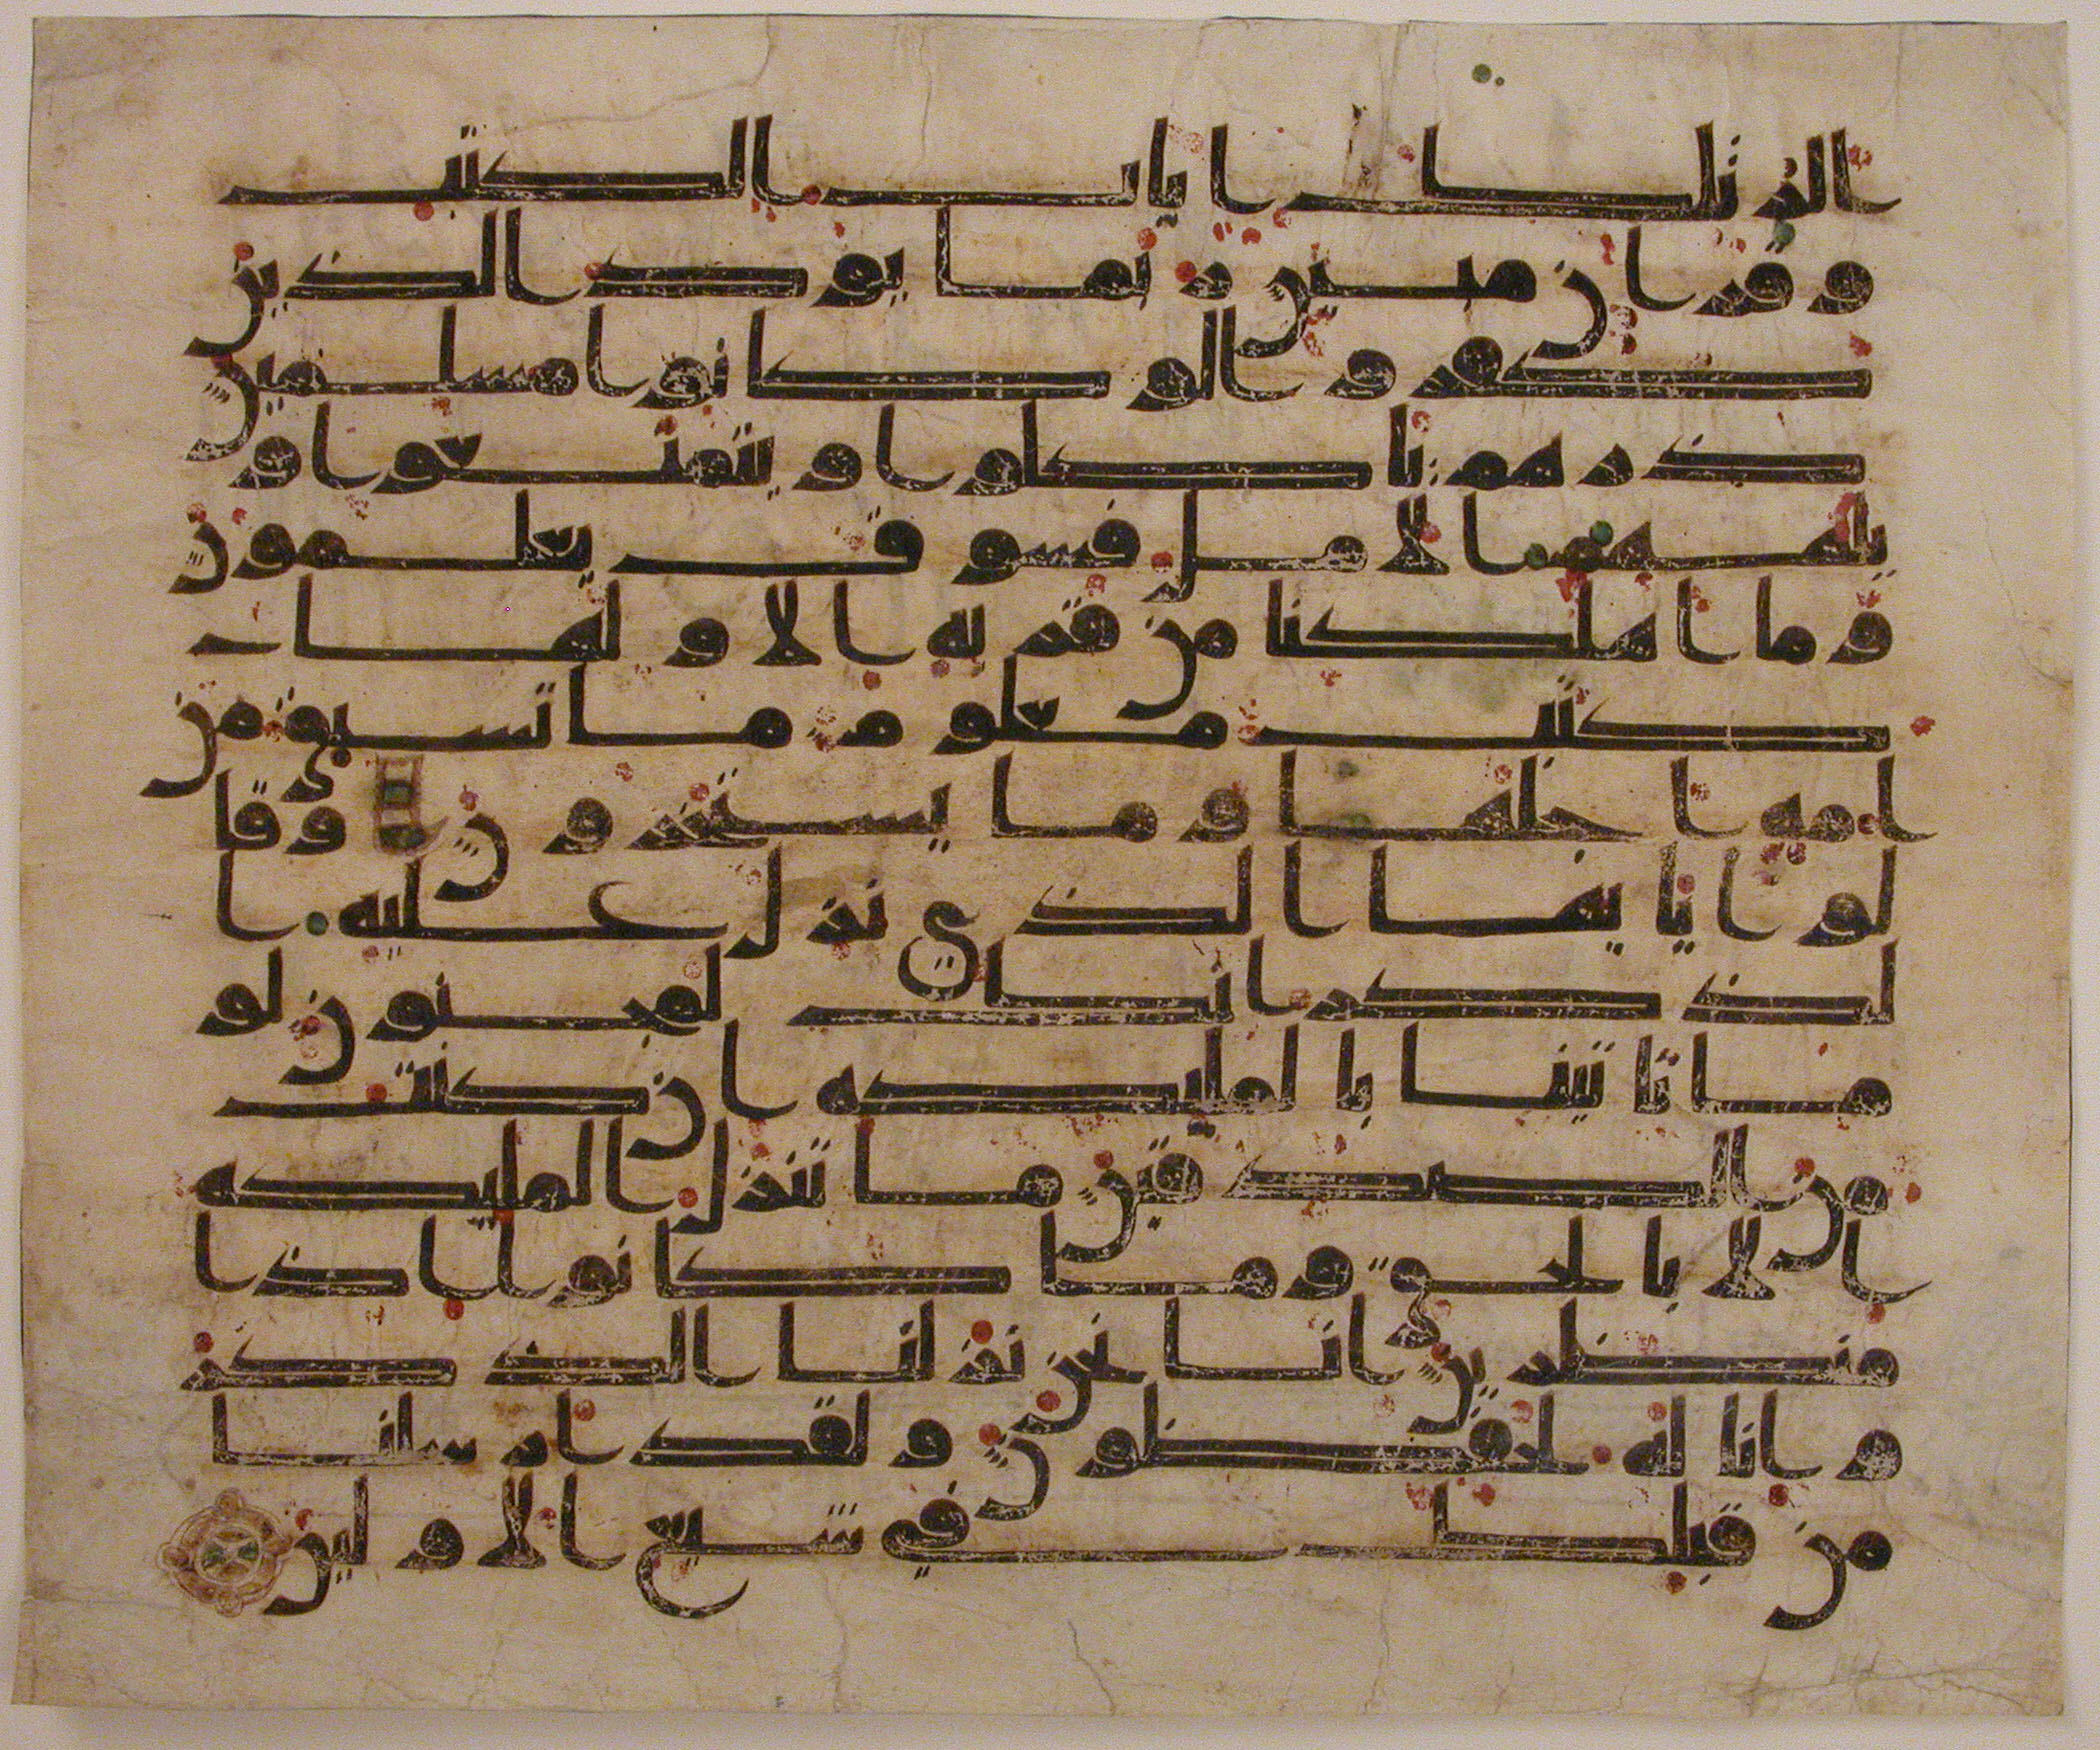 الر تلك ايات الكتب
وقران مبين ربما يود الذين
كفروا لو كانوا مسلمين
ذرهم ياكلوا ويتمتعوا و
يلههم الامل فسوف يعلمون
وما اهلكنا من قرية الا ولها
كتب معلوم ما تسبق من
امة اجلها وما يستخرون وقا
لوا يايها الذي نزل عليه ا
لذكر انك لمجنون لو
ما تاتينا بالمليكة ان كنت
من الصدقين ما تنزل المليكة
الا بالحق وما كانوا اذا
منظرين انا نحن نزلنا الذكر
وانا له لحفظون ولقد ارسلنا
من قبلك في شيع الاولين